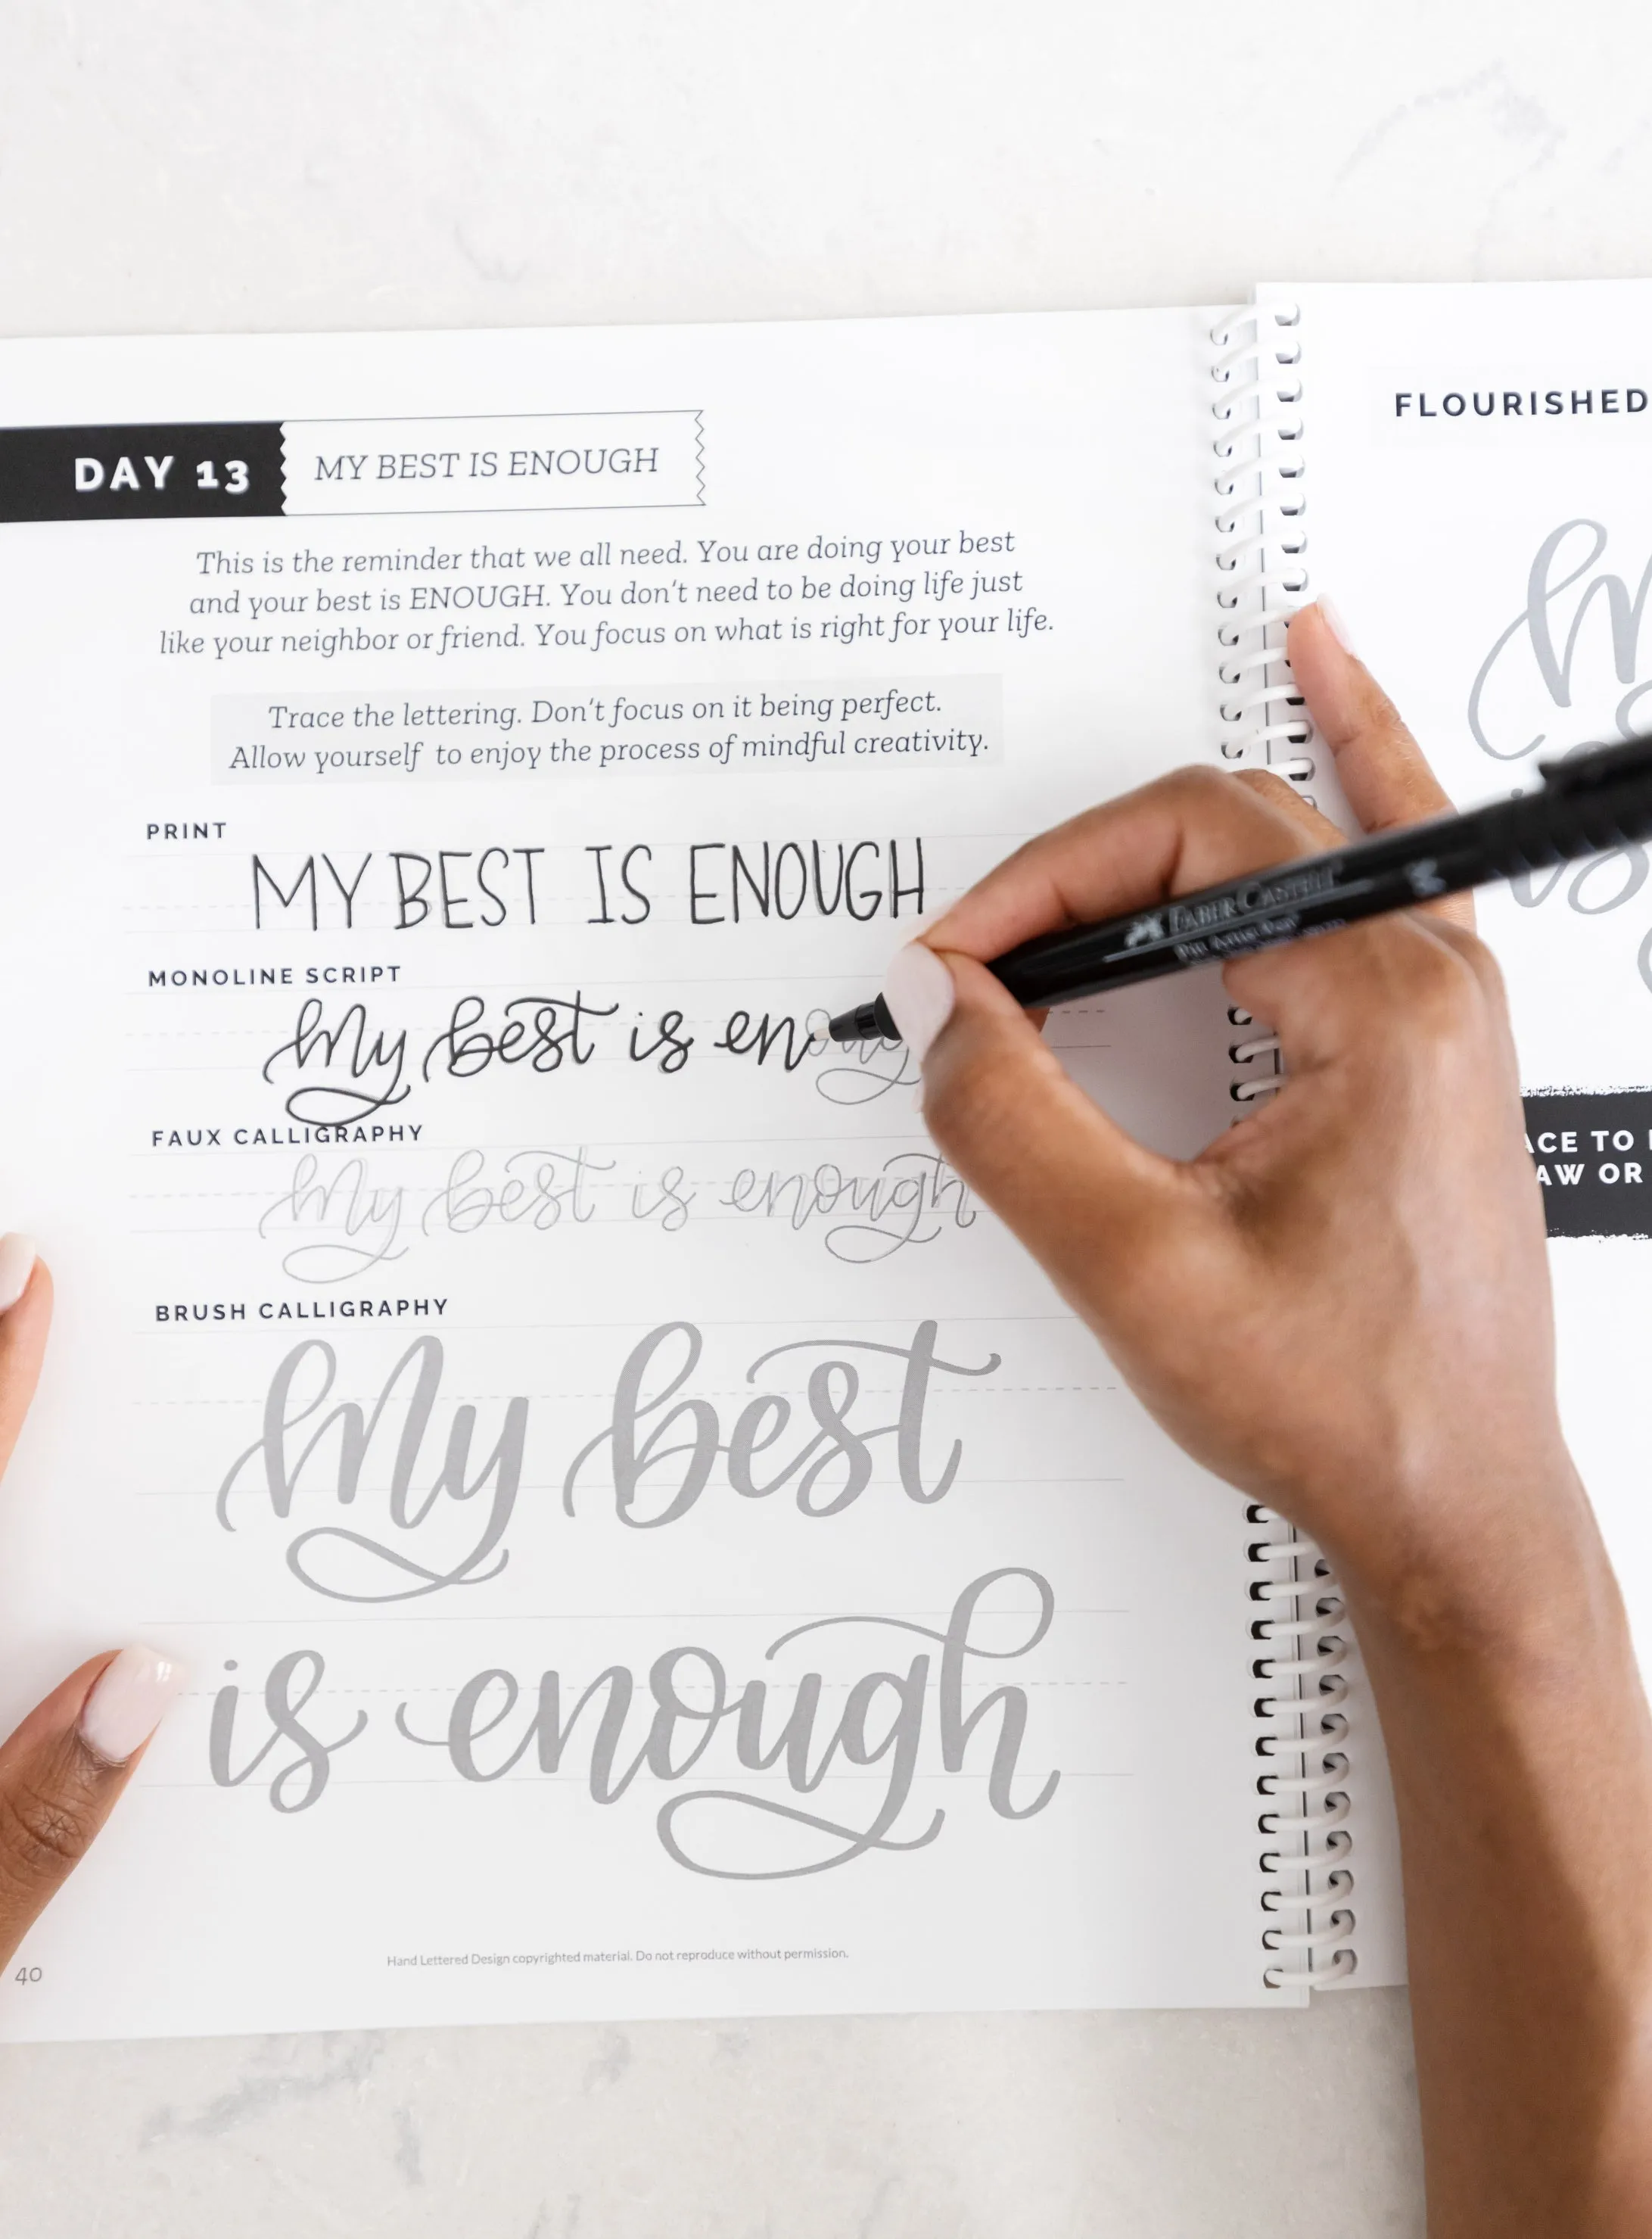 DAY 13
MY BEST IS ENOUGH
This is the reminder that we all need. You are doing your best
and your best is ENOUGH. You don't need to be doing life just
like your neighbor or friend. You focus on what is right for your life.
Trace the lettering. Don't focus on it being perfect.
Allow yourself to enjoy the process of mindful creativity.
PRINT
MY BEST IS ENOUGH
MONOLINE SCRIPT
my best is enoug
FAUX CALLIGRAPHY
my best is enough
BRUSH CALLIGRAPHY
my best
is enough
Hand Lettered Design copyrighted material. Do not reproduce without permission.
40
FABER-CASTELL
Pitt Artist Pen
FLOURISHED
is
ACE TO
AW OR